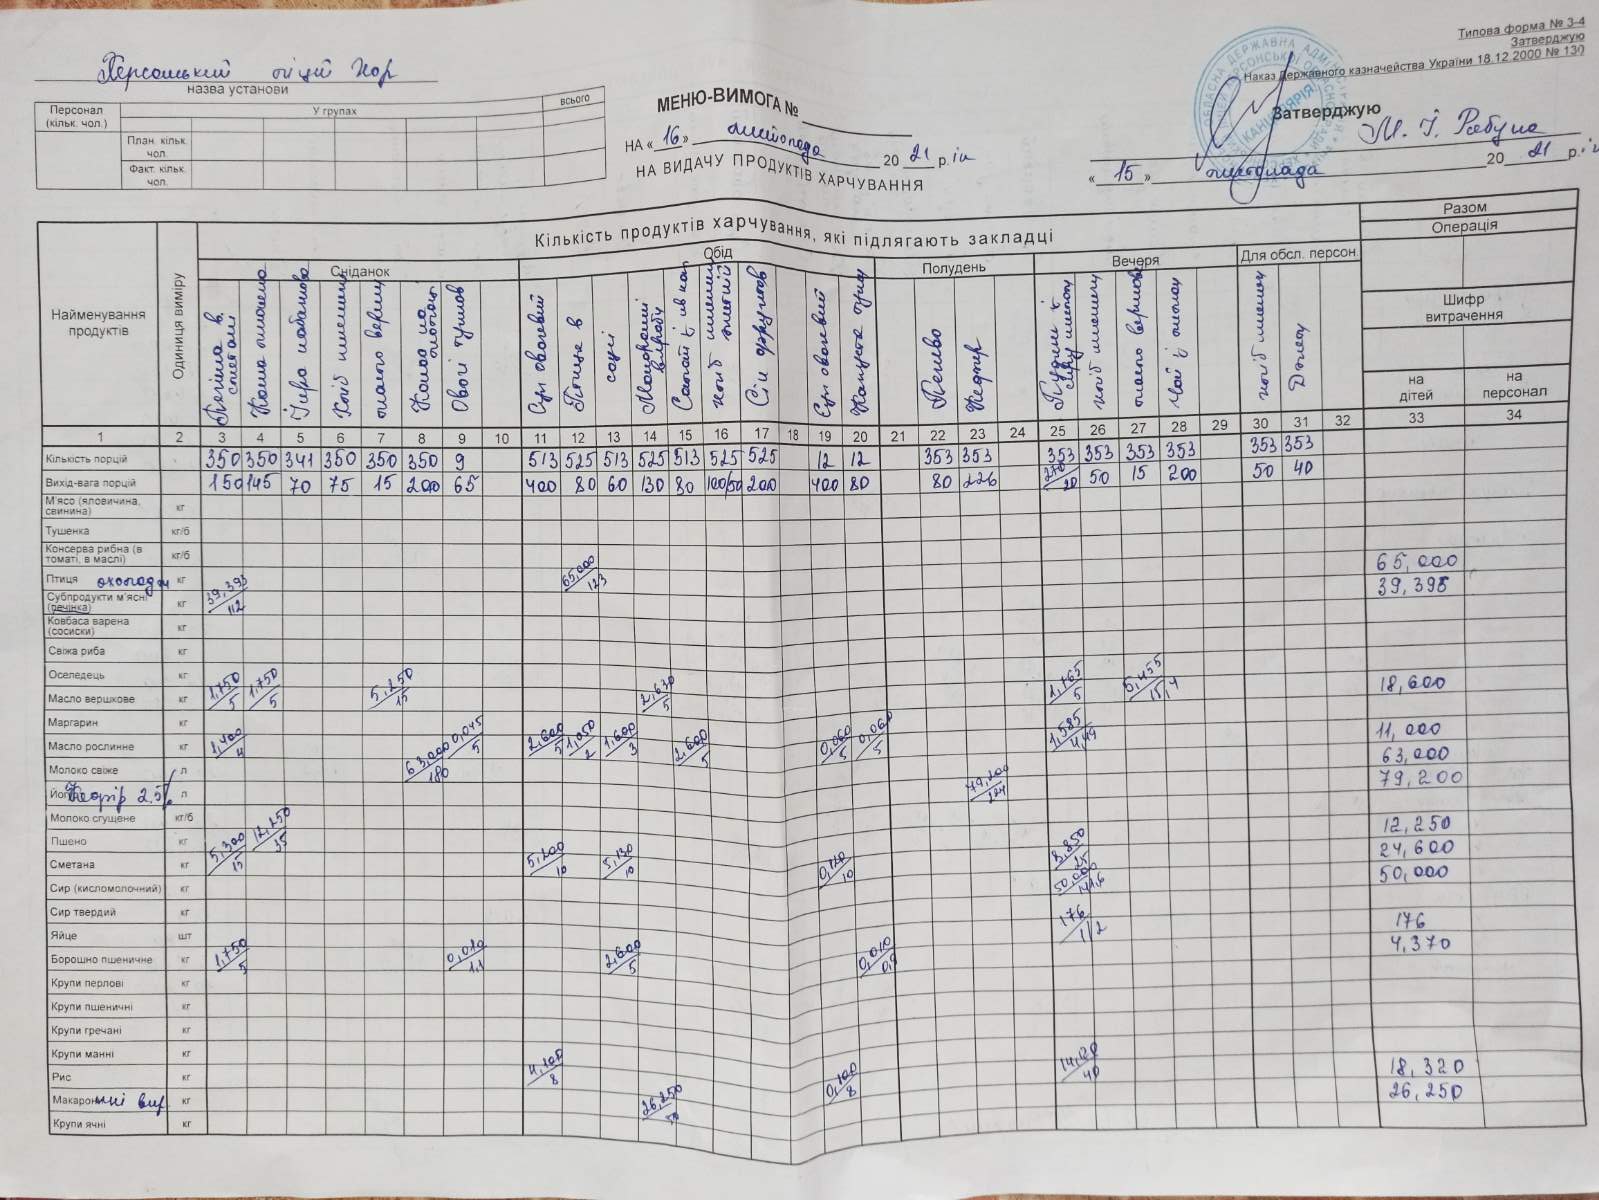 Типова форма № 3-4
Затверджую
Наказ Державного казначейства України 18.12.2000 № 130
Херсонський ліцей
назва установи
Персонал (кільк. чол.)
У групах
всього
План. кільк. чол.
Факт. кільк. чол.
МЕНЮ-ВИМОГА №
НА « 16 » листопада 20 21 р.
НА ВИДАЧУ ПРОДУКТІВ ХАРЧУВАННЯ
Затверджую
« 15 » листопада 20 21 р.
КАНЦЕЛЯРІЯ
Найменування продуктів
Одиниця виміру
Кількість продуктів харчування, які підлягають закладці
Разом
Операція
Сніданок
Обід
Полудень
Вечеря
Для обсл. персон.
Шифр витрачення
на дітей
на персонал
Печінка в сметані
Каша пшоняна
Ікра кабачкова
Хліб пшеничн
масло верш
Какао на молоці
Овочі тушков
Суп овочевий
Птиця в
соусі
Макаронні вироби
Хліб пшенич житній
Сік фруктов
Суп овочевий
Капуста туш
Печиво
Кефир
хліб пшенич
масло вершков
Чай
хліб пшенич
1 2 3 4 5 6 7 8 9 10 11 12 13 14 15 16 17 18 19 20 21 22 23 24 25 26 27 28 29 30 31 32 33 34
Кількість порцій 350 350 341 350 350 350 9 513 525 513 525 513 525 525 12 12 353 353 353 353 353 353 353 353
Вихід-вага порцій 150 145 70 75 15 200 65 400 80 60 130 80 100/50 200 400 80 80 226 270/20 50 15 200 50 40
М'ясо (яловичина, свинина) кг
Тушенка кг/б
Консерва рибна (в томаті, в маслі) кг/б
Птиця охолодж кг 65,000/123 65,000
Субпродукти м'ясні (печінка) кг 39,395/112 39,395
Ковбаса варена (сосиски) кг
Свіжа риба кг
Оселедець кг
Масло вершкове кг 1,750/5 1,750/5 5,250/15 2,630/5 1,765/5 5,455/15,4 18,600
Маргарин кг
Масло рослинне кг 1,400/4 0,045/5 2,600/5 1,050/2 1,600/3 2,600/5 0,060/5 0,060/5 1,585/4,49 11,000
Молоко свіже л 63,000/180 63,000
Кефір 2,5% л 79,200/224 79,200
Молоко сгущене кг/б
Пшено кг 12,250/35 12,250
Сметана кг 5,300/15 5,200/10 5,130/10 0,120/10 8,850/25 24,600
Сир (кисломолочний) кг 50,000/141,6 50,000
Сир твердий кг
Яйце шт 176/1/2 176
Борошно пшеничне кг 1,750/5 0,010/1,1 2,600/5 0,010/0,9 4,370
Крупи перлові кг
Крупи пшеничні кг
Крупи гречані кг
Крупи манні кг
Рис кг 4,100/8 0,100/8 14,120/40 18,320
Макаронні вир кг 26,250/50 26,250
Крупи ячні кг